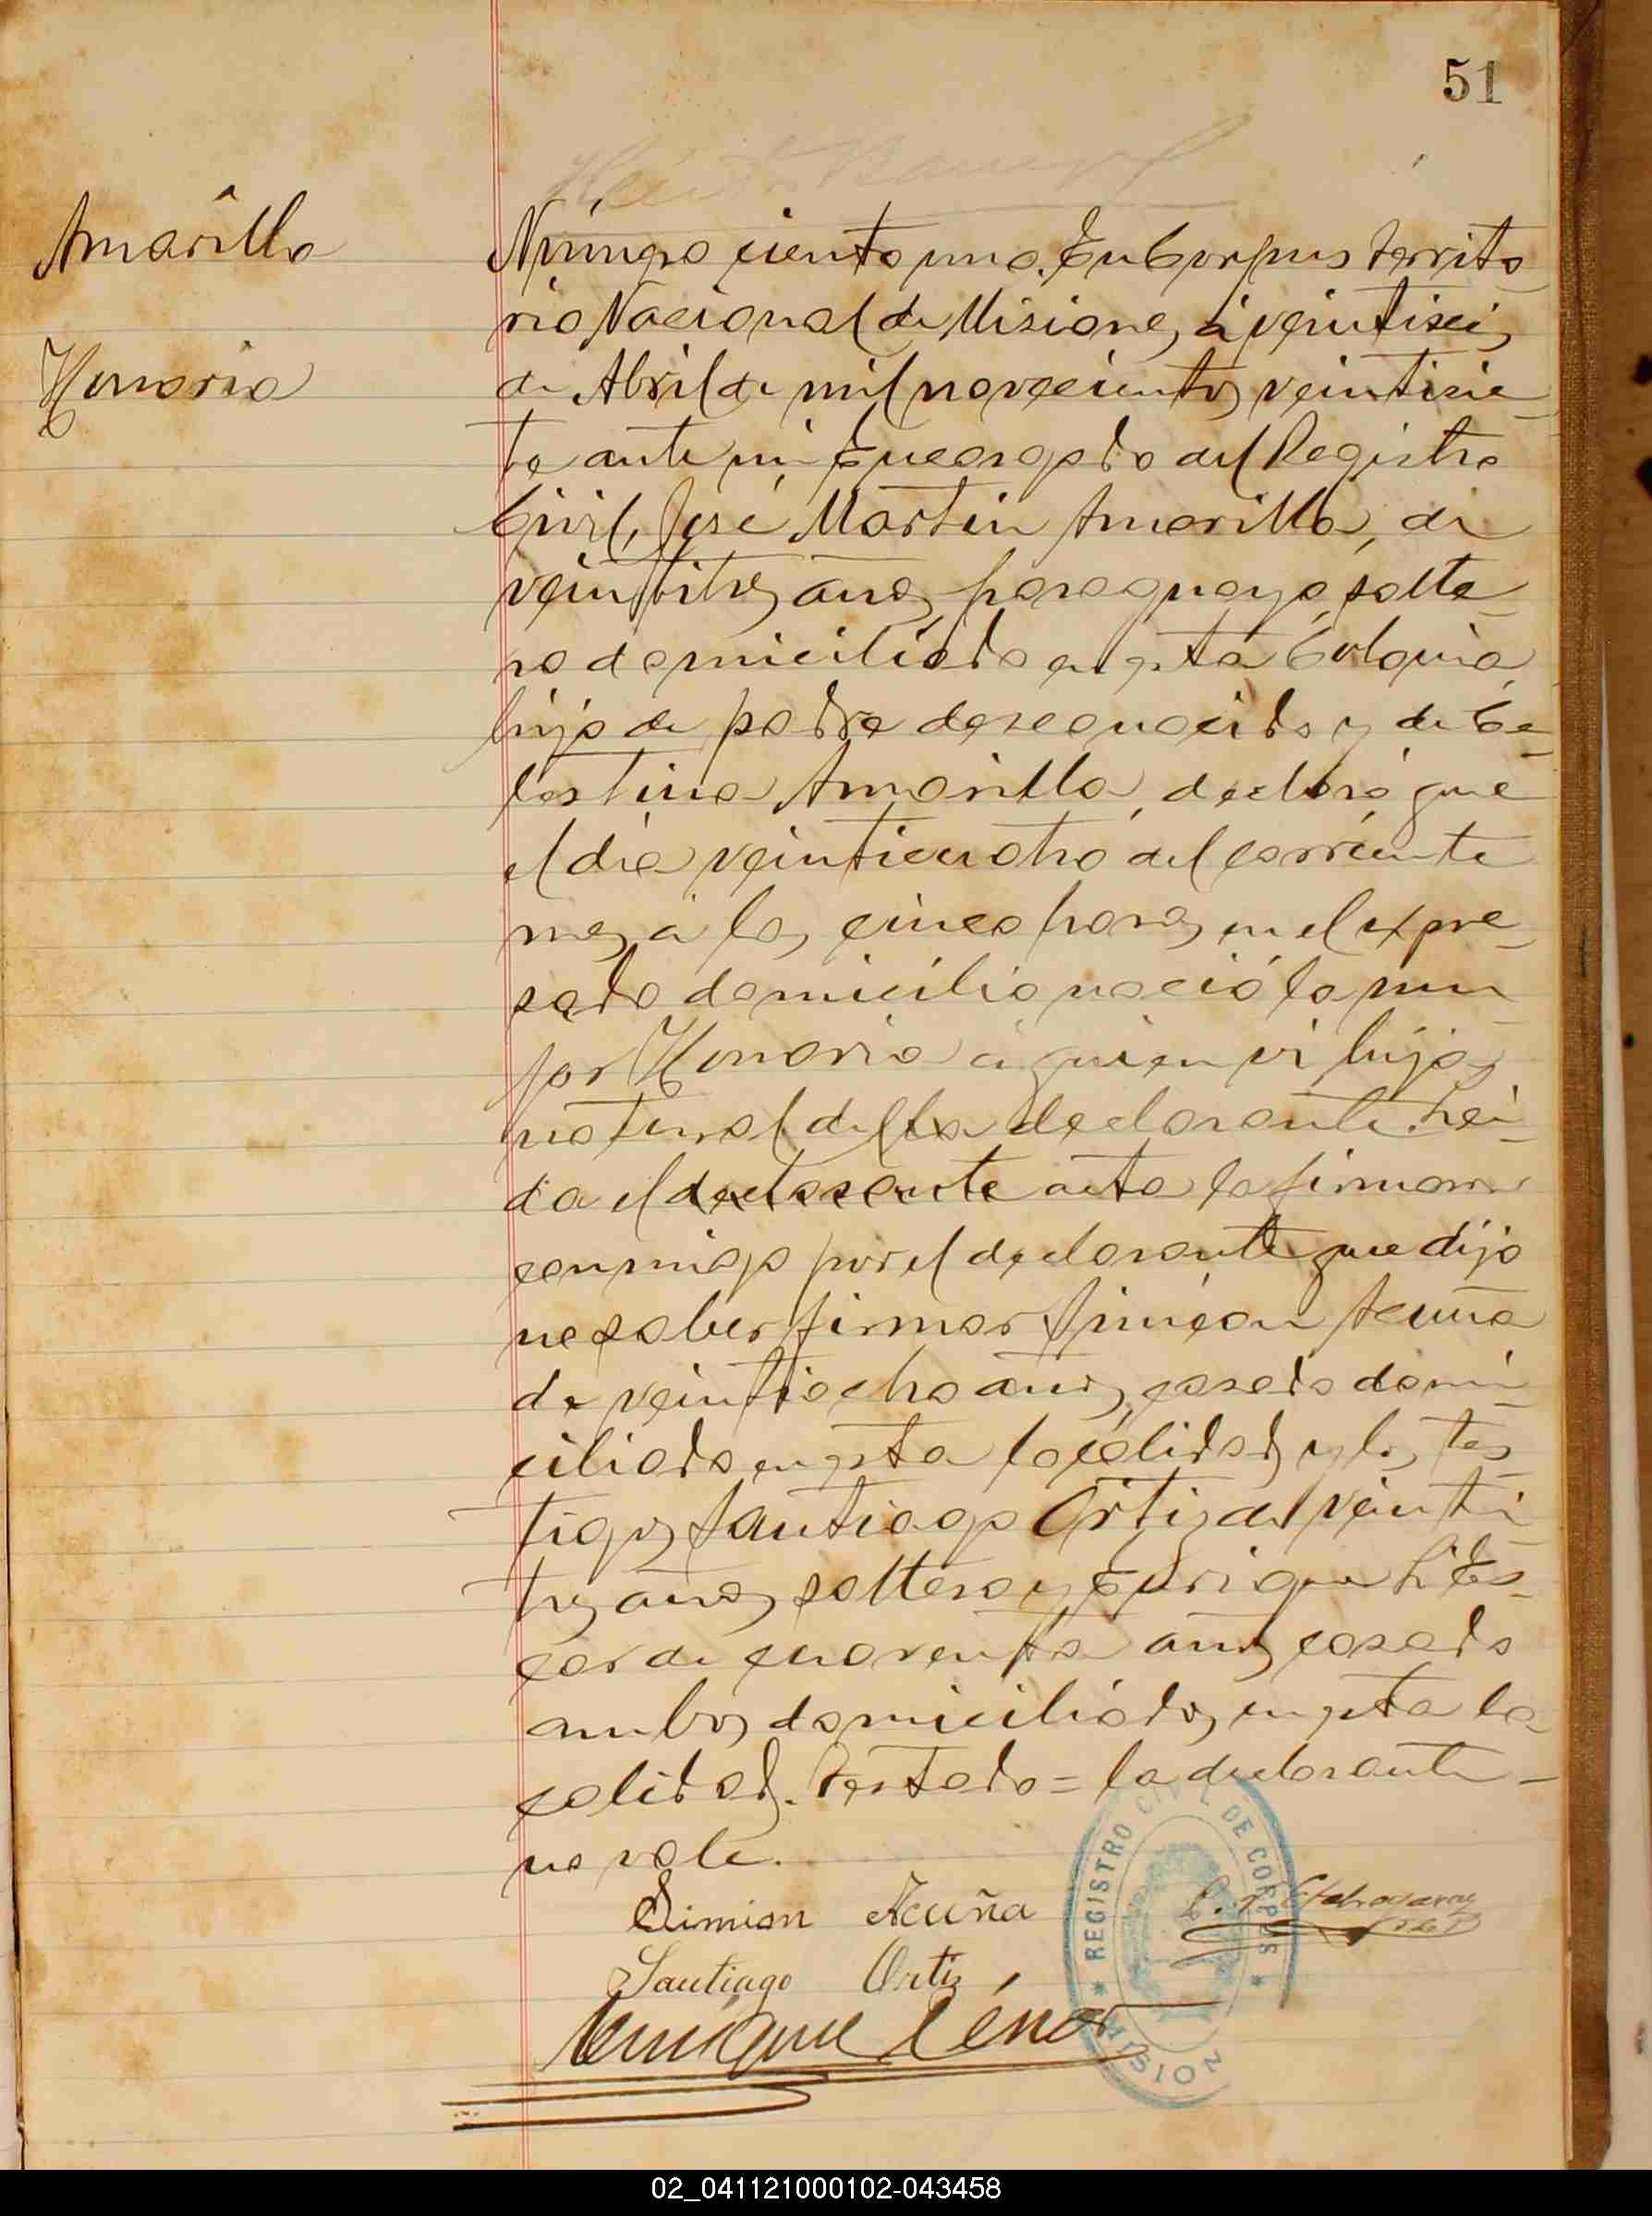 51
Amarilla
Honoria
Número ciento uno. En Corpus territo
rio Nacional de Misiones, á veintiseis
de Abril de mil novecientos veintisie-
te ante mi Encargado del Registro
Civil, José Martin Amarilla, de
veintitres años, paraguayo, solte-
ro domiciliado en esta Colonia,
hijo de padre desconocido y de Ce-
lestina Amarilla, declaró que
el dia veinticuatro del corriente
mes a las cinco horas en el expre-
sado domicilio nació la mu
jer Honoria a quien vi hija
natural del la declarante. Lei-
da el declarante acta la firmaron
conmigo por el declarante que dijo
no saber firmar Simeon Acuña
de veintiocho años, casado domi-
ciliado en esta localidad y los tes-
tigos Santiago Ortiz de veinti-
tres años, soltero y Enrique
de cuarenta años casado
ambos domiciliados en esta lo-
calidad. Testado = la declarante -
no vale.
Simion Acuña
Santiago Ortiz
Enrique
REGISTRO CIVIL DE CORPUS
MISION
02_041121000102-043458